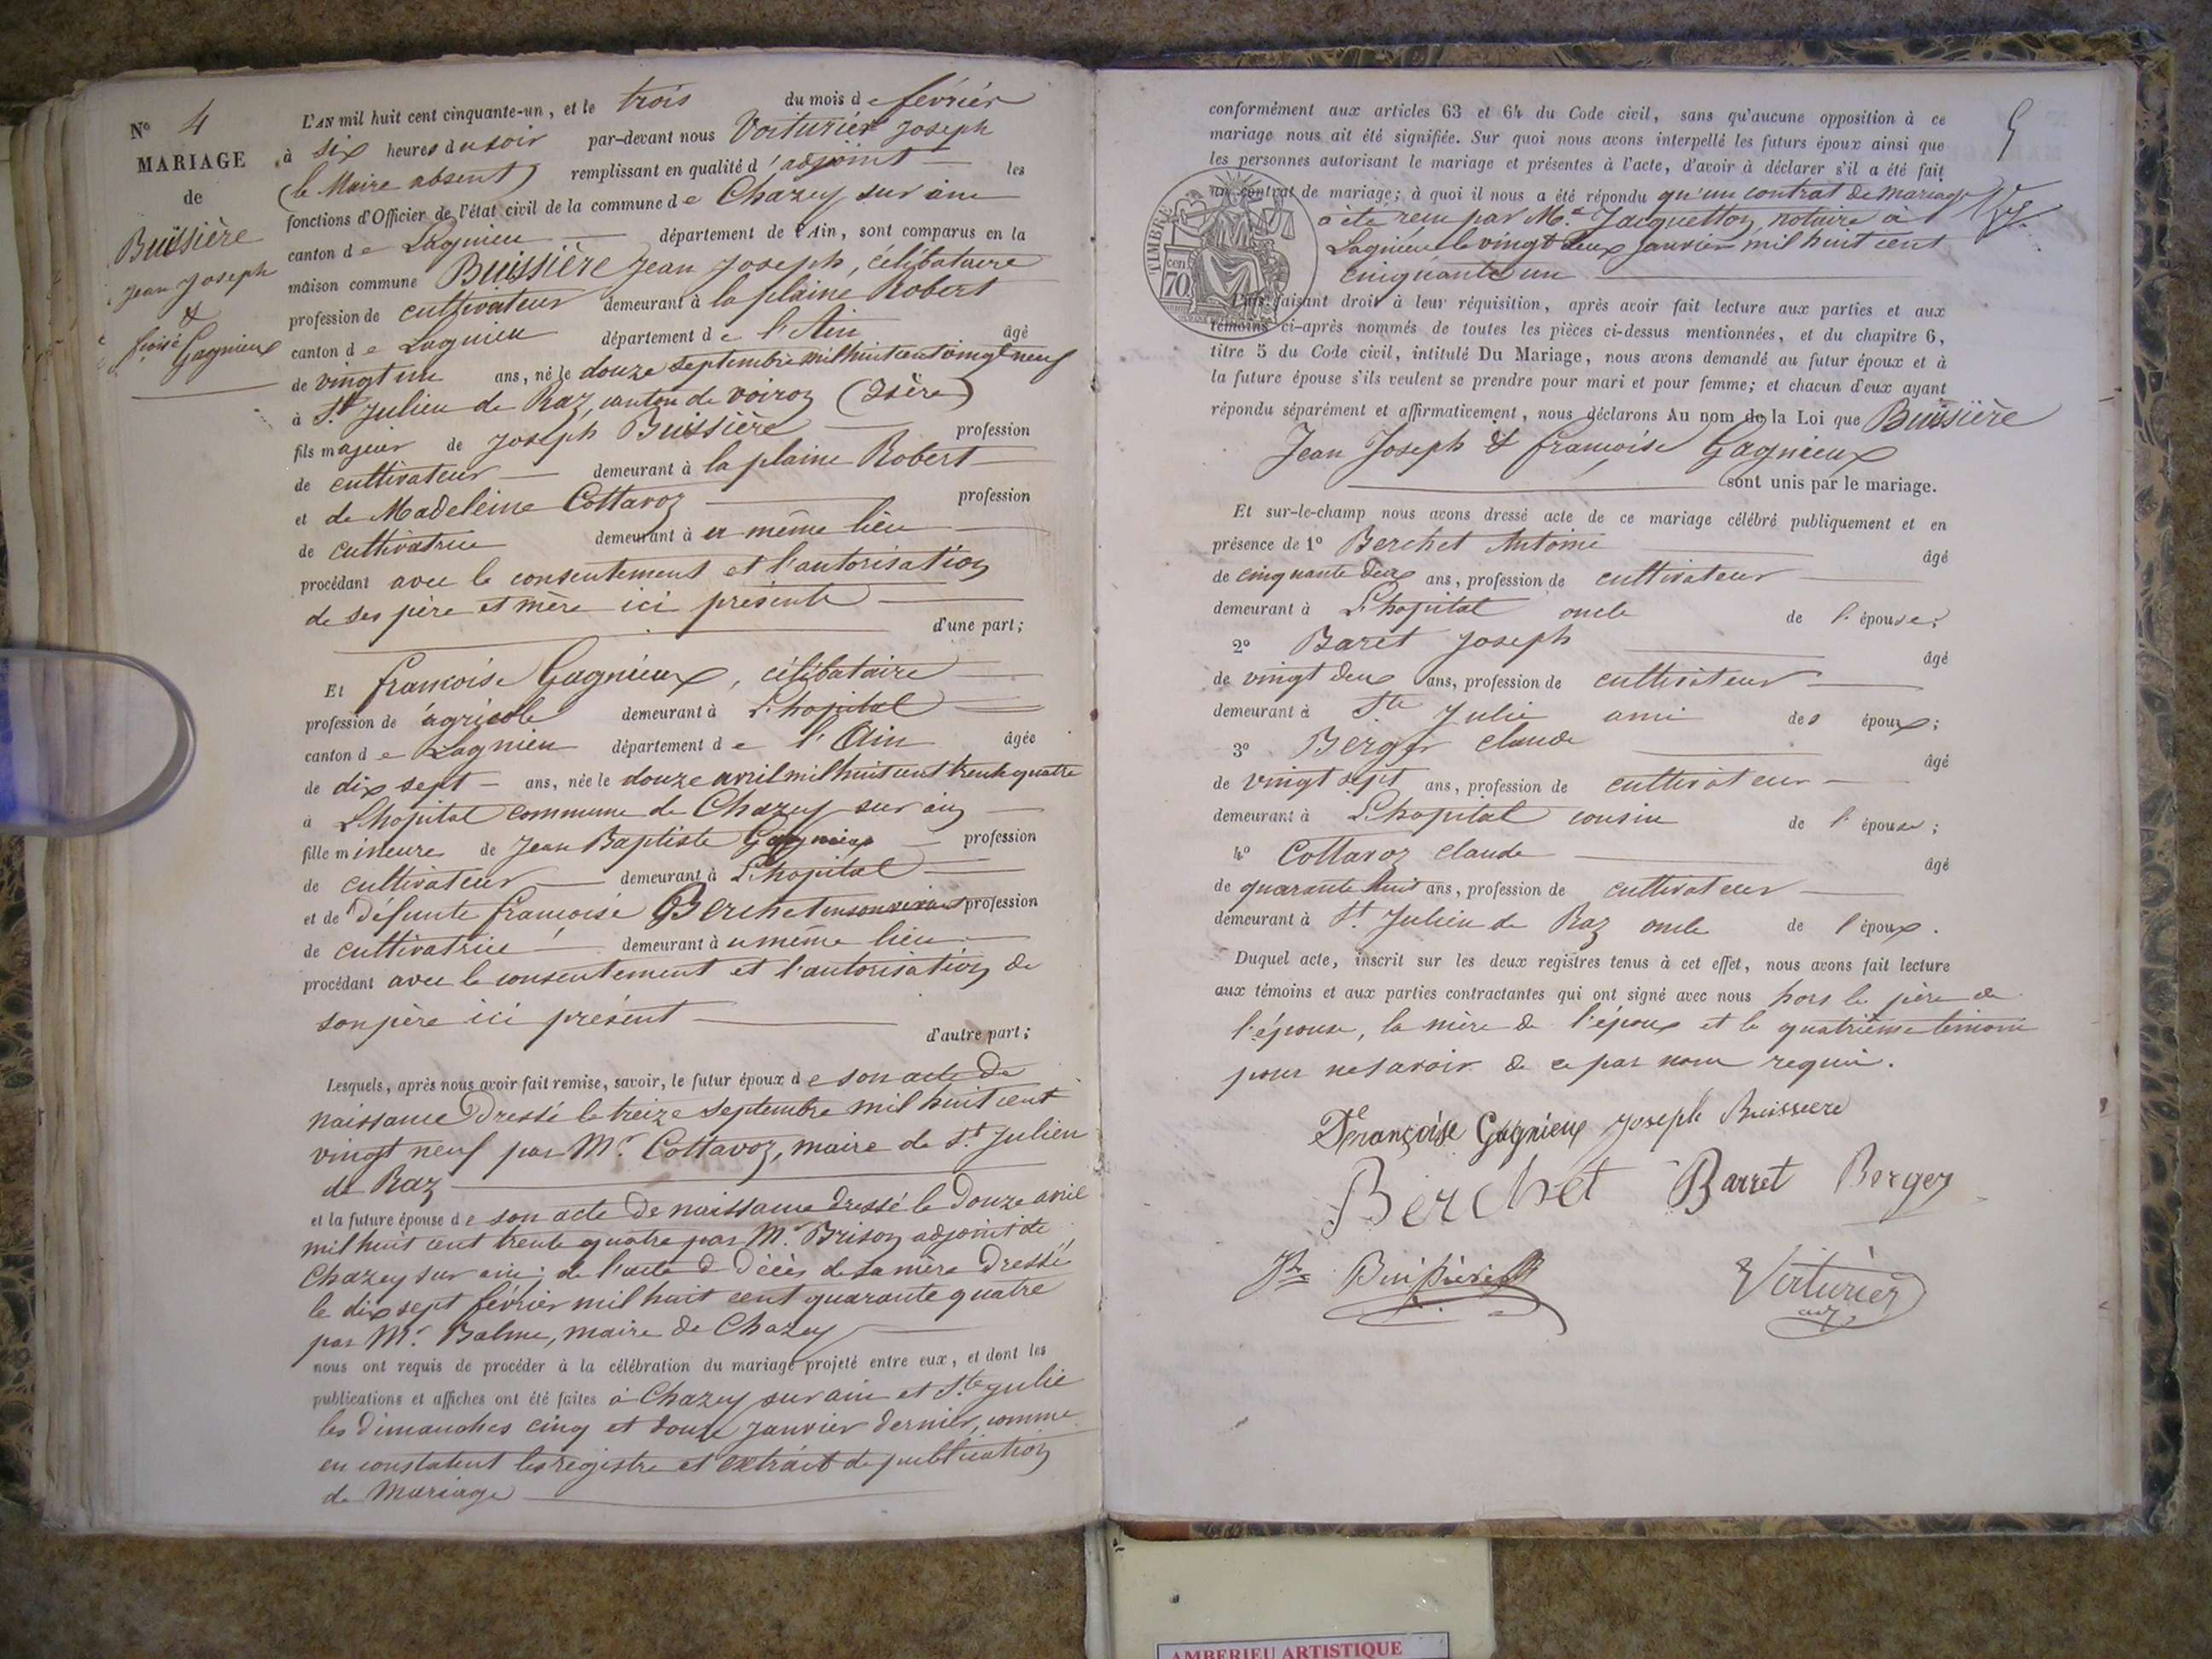 N° 4
MARIAGE
de
Buissière
Jean Joseph
&
fçoise Gagnieux
L'AN mil huit cent cinquante-un, et le trois du mois de février
à six heures du soir par-devant nous Voiturier Joseph
(le Maire absent) remplissant en qualité d'adjoint les
fonctions d'Officier de l'état civil de la commune de Chazey sur ain
canton de Lagnieu département de l'Ain, sont comparus en la
maison commune Buissière Jean Joseph, célibataire
profession de cultivateur demeurant à la plaine Robert
canton de Lagnieu département de l'Ain âgé
de vingt un ans, né le douze septembre mil huit cent vingt neuf
à St Julien de Raz, canton de voiron (Isère)
fils majeur de Joseph Buissière profession
de cultivateur demeurant à la plaine Robert
et de Madeleine Cottavoz profession
de cultivatrice demeurant à au même lieu
procédant avec le consentement et l'autorisation
de ses père et mère ici présents
d'une part;
Et françoise Gagnieux, célibataire
profession de agricole demeurant à L'hopital
canton de Lagnieu département de l'Ain âgée
de dix sept ans, née le douze avril mil huit cent trente quatre
à L'hopital commune de Chazey sur ain
fille mineure de Jean Baptiste Gagnieux profession
de cultivateur demeurant à L'hopital
et de défunte françoise Berchet en son vivant profession
de cultivatrice demeurant à au même lieu
procédant avec le consentement et l'autorisation de
son père ici présent
d'autre part;
Lesquels, après nous avoir fait remise, savoir, le futur époux de son acte de
naissance dressé le treize septembre mil huit cent
vingt neuf par Mr. Cottavoz, maire de St. Julien
de Raz
et la future épouse de son acte de naissance dressé le douze avril
mil huit cent trente quatre par Mr. Brison adjoint de
Chazey sur ain; de l'acte de décès de sa mère dressé
le dix sept février mil huit cent quarante quatre
par Mr. Balme, maire de Chazey
nous ont requis de procéder à la célébration du mariage projeté entre eux, et dont les
publications et affiches ont été faites à Chazey sur ain et Ste Julie
les dimanches cinq et douze janvier dernier, comme
en constatent les registre et extrait de publication
de Mariage
5
conformément aux articles 63 et 64 du Code civil, sans qu'aucune opposition à ce
mariage nous ait été signifiée. Sur quoi nous avons interpellé les futurs époux ainsi que
les personnes autorisant le mariage et présentes à l'acte, d'avoir à déclarer s'il a été fait
un contrat de mariage; à quoi il nous a été répondu qu'un contrat de mariage
a été reçu par Me. Jacquetton, notaire à
Lagnieu le vingt deux janvier mil huit cent
cinquante un
TIMBRE
cen
70
Puis faisant droit à leur réquisition, après avoir fait lecture aux parties et aux
témoins ci-après nommés de toutes les pièces ci-dessus mentionnées, et du chapitre 6,
titre 5 du Code civil, intitulé Du Mariage, nous avons demandé au futur époux et à
la future épouse s'ils veulent se prendre pour mari et pour femme; et chacun d'eux ayant
répondu séparément et affirmativement, nous déclarons Au nom de la Loi que Buissière
Jean Joseph & françoise Gagnieux
sont unis par le mariage.
Et sur-le-champ nous avons dressé acte de ce mariage célébré publiquement et en
présence de 1° Berchet Antoine âgé
de cinquante deux ans, profession de cultivateur
demeurant à L'hopital oncle de l'épouse;
2° Baret Joseph âgé
de vingt deux ans, profession de cultivateur
demeurant à Ste Julie ami des époux;
3° Berger Claude âgé
de vingt sept ans, profession de cultivateur
demeurant à L'hopital cousin de l'épouse;
4° Cottavoz Claude âgé
de quarante huit ans, profession de cultivateur
demeurant à St. Julien de Raz oncle de l'époux.
Duquel acte, inscrit sur les deux registres tenus à cet effet, nous avons fait lecture
aux témoins et aux parties contractantes qui ont signé avec nous hors le père de
l'épouse, la mère de l'époux et le quatrième témoin
pour ne savoir de ce par nous requis.
Françoise Gagnieux Joseph Buissiere
Berchet Barret Berger
Buissière Voiturier
adj
AMBERIEU ARTISTIQUE